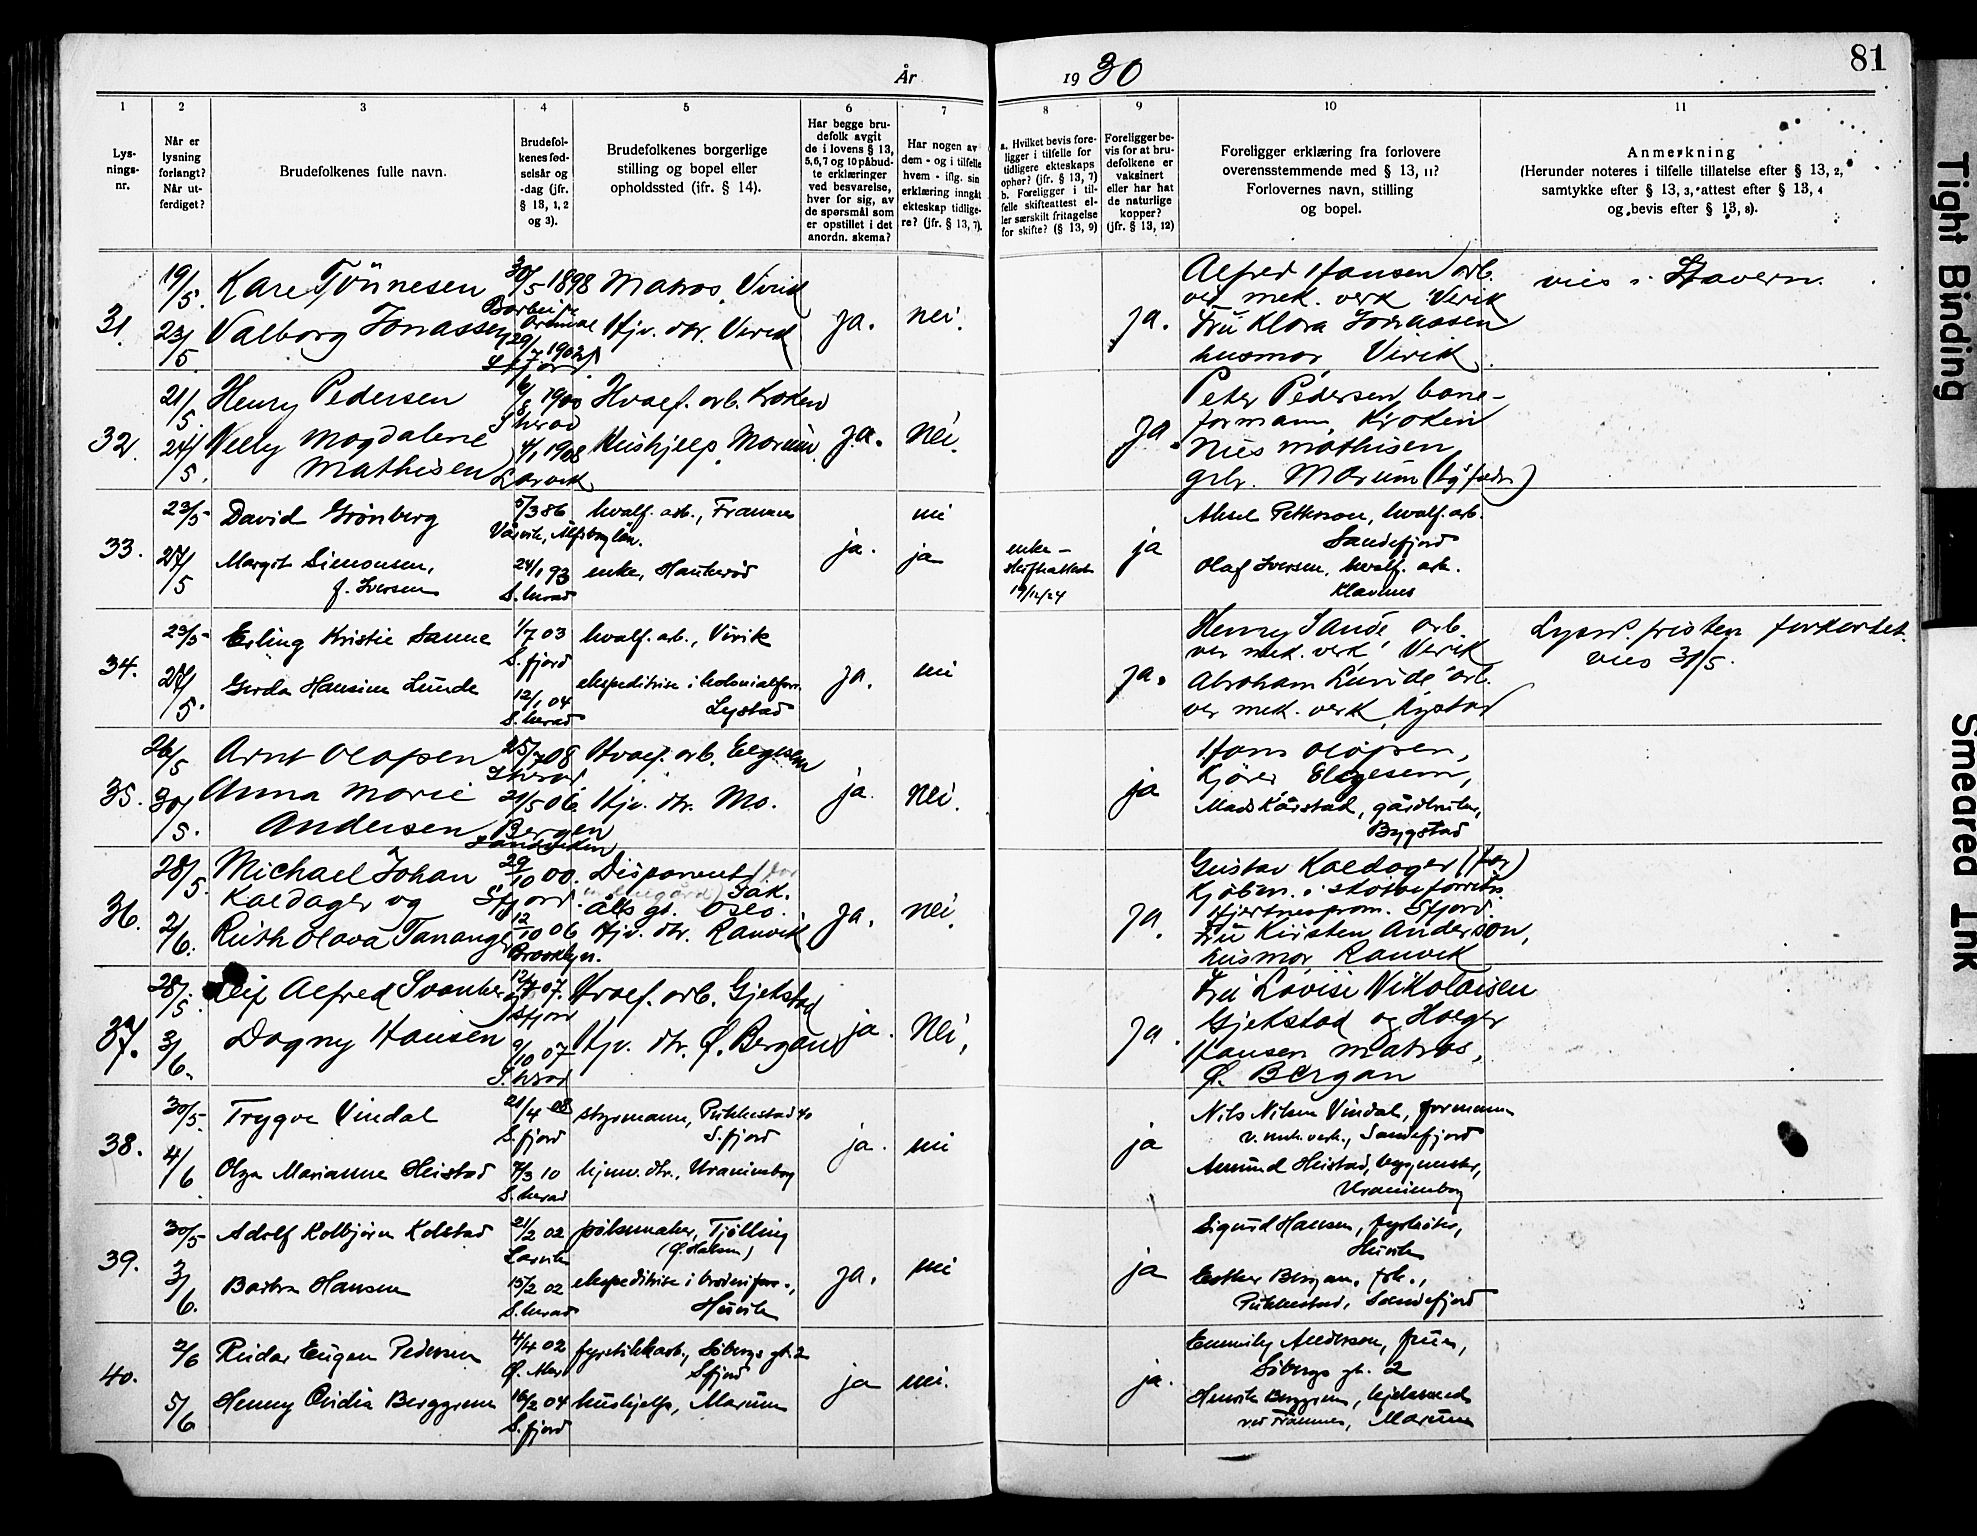 81
År 1930
1
2
3
4
5
6
7
8
9
10
11
Lys-
nings-
nr.
Når er
lysning
forlangt?
Når ut-
ferdiget?
Brudefolkenes fulle navn.
Brudefol-
kenes fød-
selsår og
-dag (jfr.
§ 13, 1, 2
og 3).
Brudefolkenes borgerlige
stilling og bopel eller
opholdssted (ifr. § 14).
Har begge bru-
defolk avgit
de i lovens § 13,
5,6,7 og 10 påbud-
te erklæringer
ved besvarelse,
hver for sig, av
de spørsmål som
er opstillet i det
anordn. skema?
Har nogen av
dem - og i tilfelle
hvem - iflg. sin
erklæring inngåt
ekteskap tidlige-
re? (jfr. § 13, 7).
a. Hvilket bevis fore-
ligger i tilfelle for
tidligere ekteskaps
ophør? (jfr. § 13, 7)
b. Foreligger i til-
felle skifteattest el-
ler særskilt fritagelse
for skifte? (§ 13, 9)
Foreligger be-
vis for at bru-
defolkene er
vaksinert
eller har hat
de naturlige
kopper?
(jfr. § 13, 12)
Foreligger erklæring fra forlovere
overensstemmende med § 13, 11?
Forlovernes navn, stilling
og bopel.
Anmerkning
(Herunder noteres i tilfelle tillatelse efter § 13, 2,
samtykke efter § 13, 3, attest efter § 13, 4
og bevis efter § 13, 8).
31.
19/5.
23/5.
Kare Tönnesen
Valborg Jonassen
30/5 1898
29/7 1902
Sfjord
Matros, Virik
Hjv. dtr. Virik
ja.
nei.
ja.
Alfred Hansen arb.
ved mek. verk Virik
Frü Klara Jonassen
husmor, Virik
vies i Stavern.
32.
21/5.
24/5.
Henry Pedersen
Velly Magdalene
Mathisen
1900
S herad
4/1 1908
Larvik
Hvalf. arb. Kroken
Hushjelp, Marüm
ja.
Nei.
ja.
Peter Pedersen bane-
formann, Kroken
Nils Mathisen
grbr. Marüm
33.
23/5
27/5
David Grønberg
Margit Simonsen,
f. Iversen
5/3 86
24/1 93
S. herad
hvalf. arb., Framnes
enke, Haukerød
ja.
nei
ja
enke -
skifteattest
19/12/24
ja
Aksel Pettersson, hvalf. arb.
Sandefjord
Olaf Iversen, hvalf. arb.
Klavenes
34.
23/5
27/5.
Erling Kristie Sanne
Gerda Hansine Lunde
1/7 03
S. fjord
12/1 04
S. herad
hvalf. arb., Virik
ekspeditrise i kolonialforr.
Lystad
ja.
nei
ja.
Henry Sande, arb.
ved mek. verk, Virik
Abraham Lunde arb.
ved mek. verk, Lystad
Lysn. fristen forkortet.
vies 31/5.
35.
26/5
30/5.
Arnt Olafsen
Anna Marie
Andersen
25/7 08
S herad
21/5 06
Bergen
Hvalf. arb. Elgesem
Hjv. dtr. Mo.
ja.
Nei.
ja
Hans Olafsen,
Kjører Elgesem,
Mads Kårstad, gårdbruker,
Bygstad
36.
28/5.
2/6.
Michael Johan
Kaldager og
Ruth Olava Tananger
29/10 00.
Sfjord.
12/10 06
Brooklyn.
Disponent
Oslo.
Hjv. dtr. Ranvik
ja.
Nei.
ja.
Gustav Kaldager (far)
Sfjord.
Frü Kirsten Anderson,
husmor, Ranvik
37.
28/5.
3/6.
Leif Alfred Svanberg
Dagny Hansen
12/7 07.
Sfjord
9/10 07
S. herad
Hvalf. arb. Gjekstad
Hjv. dtr. Ø. Bergan
ja.
Nei,
ja.
Frü Lovise Nikolaisen
Gjekstad og Holger
Hansen matros,
Ø. Bergan
38.
30/5.
4/6
Trygve Vindal
Olga Marianne Heistad
21/4 08
S. fjord
7/3 10
S. herad
styrmann, Pukkestad 40
S. fjord
hjemv. dtr., Uranienborg
ja.
nei
ja
Nils Nilsen Vindal, formann
v. mek. verk., Sandefjord
Amund Heistad, byggmester,
Uranienborg
39.
30/5
3/6.
Adolf Kolbjörn Kolstad
Barbra Hansen
21/2 02
Larvik
15/2 02
S. herad
pølsemaker, Tjølling
ekspeditrise i
Husvik
ja.
nei
ja
Sigurd Hansen, fyrbøter,
Husvik
Esther Bergan, frk.,
Pukkestad, Sandefjord
40.
2/6
5/6
Reidar Eugen Pedersen
Henny Ovidia Berggren
4/4 02
16/2 04
S. fjord
fyrstikkarb., Sibergs gt. 2
Sfjord
hushjelp, Marüm
ja
nei.
ja.
Emmily Andersen, frue,
Sibergs gt. 2
Henrik Berggren, kjelesmed
ved Framnes, Marüm
Tight Binding
Smeared Ink